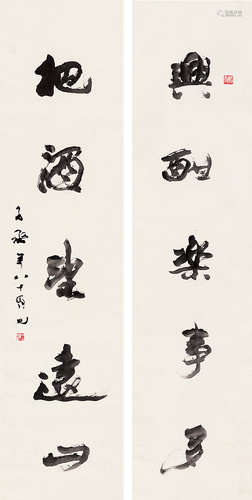 興酣樂事多
把酒望遠山
年八十